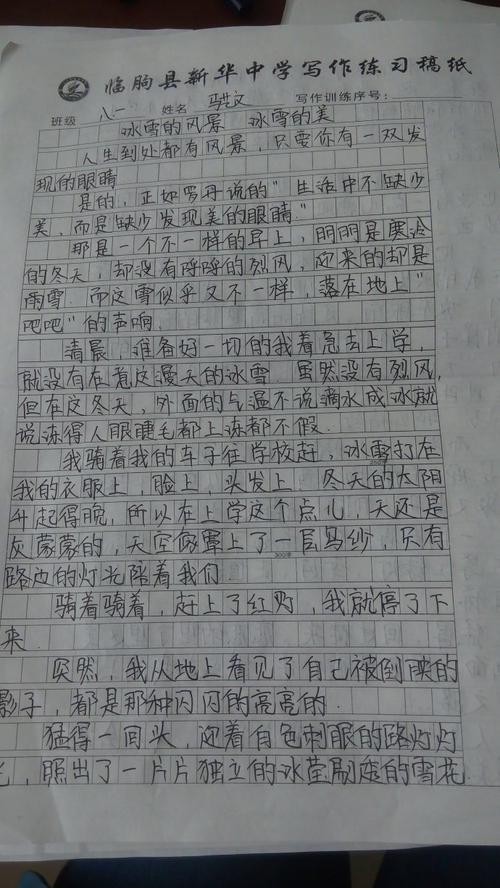 临朐县新华中学写作练习稿纸
班级 八一 姓名 马世文 写作训练序号：
冰雪的风景 冰雪的美
人生到处都有风景，只要你有一双发
现的眼睛
是的，正如罗丹说的"生活中不缺少
美，而是缺少发现美的眼睛."
那是一个不一样的早上，明明是寒冷
的冬天，却没有呼呼的烈风，迎来的却是
雨雪.而这雪似乎又不一样，落在地上"
吧吧"的声响.
清晨，准备好一切的我着急去上学，
就没有在意这漫天的冰雪.虽然没有烈风，
但在这冬天，外面的气温不说滴水成冰就
说冻得人眼睫毛都上冻都不假.
我骑着我的车子往学校赶，冰雪打在
我的衣服上，脸上，头发上.冬天的太阳
升起得晚，所以在上学这个点儿，天还是
灰蒙蒙的，天空像罩上了一层乌纱，只有
路边的灯光陪着我们.
骑着骑着，赶上了红灯，我就停了下
来.
突然，我从地上看见了自己被倒映的
影子，都是那种闪闪的亮亮的.
猛得一回头，迎着白色刺眼的路灯灯
光，照出了一片片独立的冰莹剔透的雪花